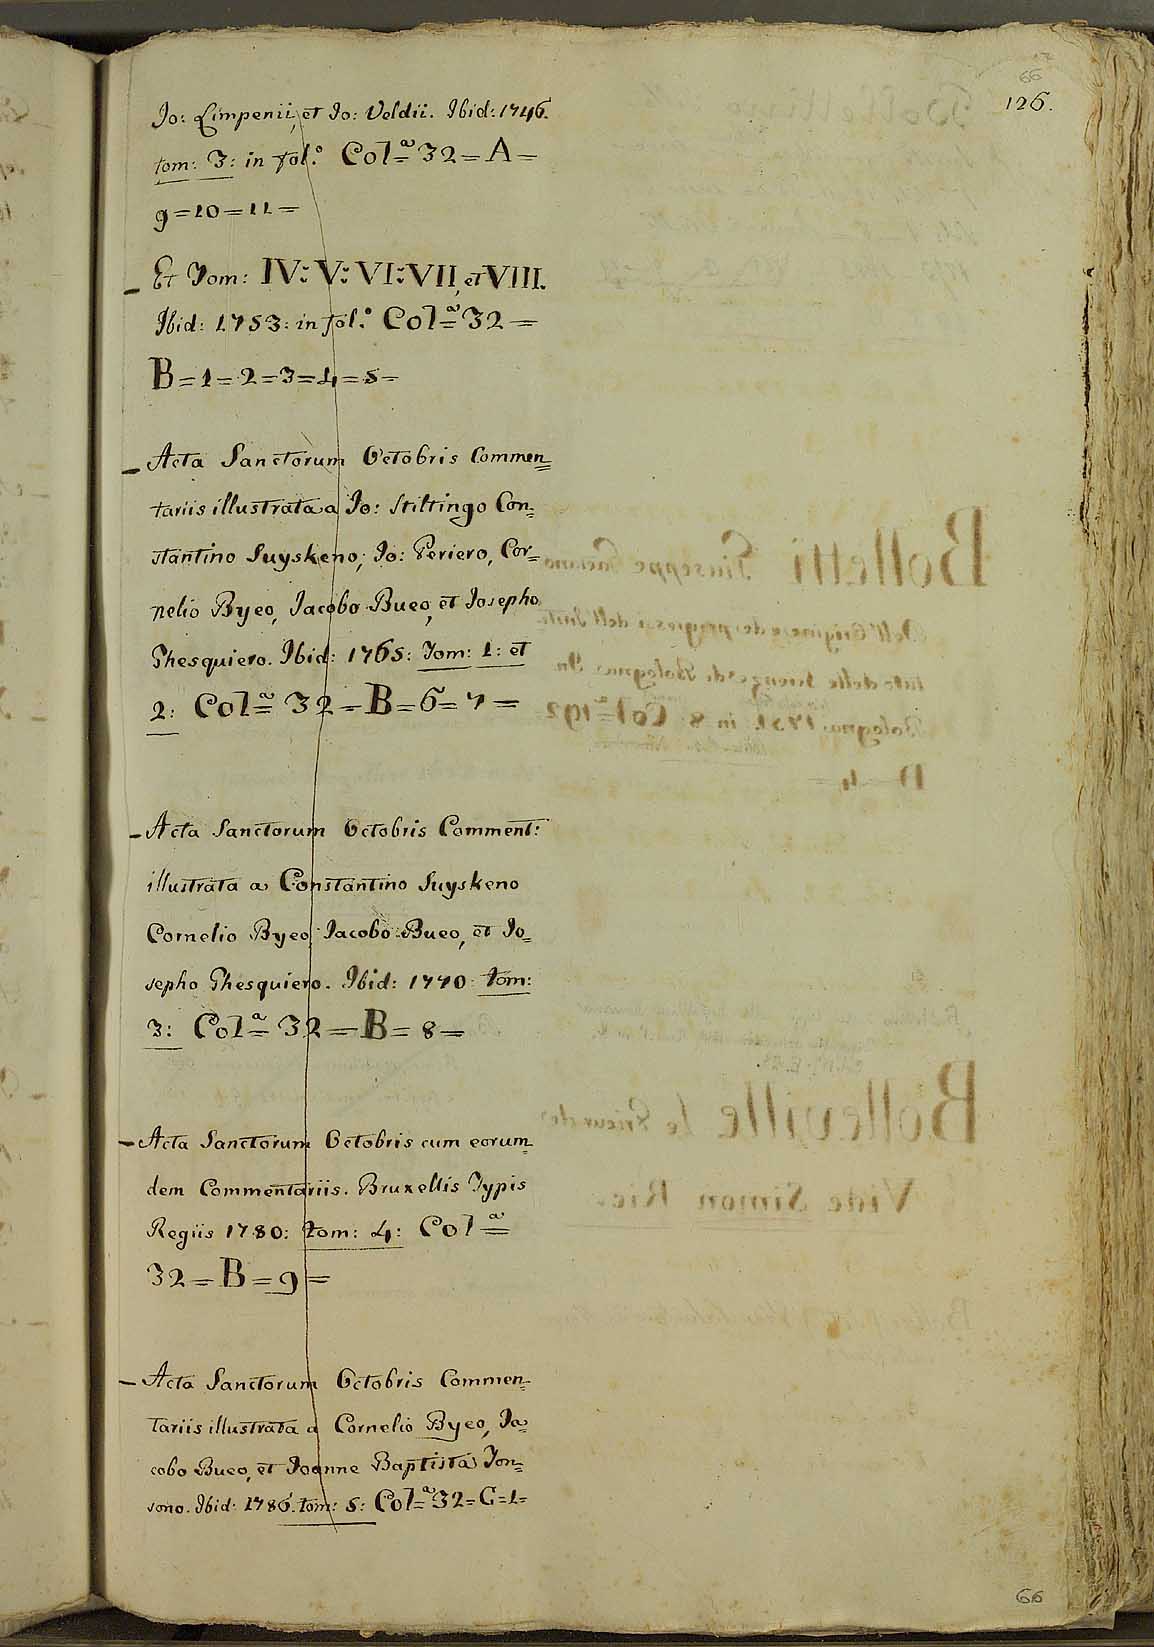 66
126.
Jo: Limpenii, et Jo: Veldii. Ibid: 1746.
tom: 3: in fol.° Col=ª 32 = A =
9 = 10 = 11 =
_ Et Tom: IV: V: VI: VII, et VIII.
Ibid: 1753: in fol.° Col=ª 32 =
B = 1 = 2 = 3 = 4 = 5 =
_ Acta Sanctorum Octobris Commen=
tariis illustrata a Jo: Stiltingo Con=
stantino Suyskeno, Jo: Periero, Cor=
nelio Byeo, Jacobo Bueo, et Josepho
Ghesquiero. Ibid: 1765: Tom: 1: et
2: Col=ª 32 = B = 6 = 7 =
_ Acta Sanctorum Octobris Comment:
illustrata a Constantino Suyskeno
Cornelio Byeo, Jacobo Bueo, et Jo=
sepho Ghesquiero. Ibid: 1770: tom:
3: Col=ª 32 = B = 8 =
_ Acta Sanctorum Octobris cum eorum=
dem Commentariis. Bruxellis Typis
Regiis 1780: tom: 4: Col=ª
32 = B = 9 =
_ Acta Sanctorum Octobris Commen=
tariis illustrata a Cornelio Byeo, Ja=
cobo Bueo, et Joanne Baptista Fon=
sono. Ibid: 1786. tom: 5: Col=ª 32 = C = 1 =
66